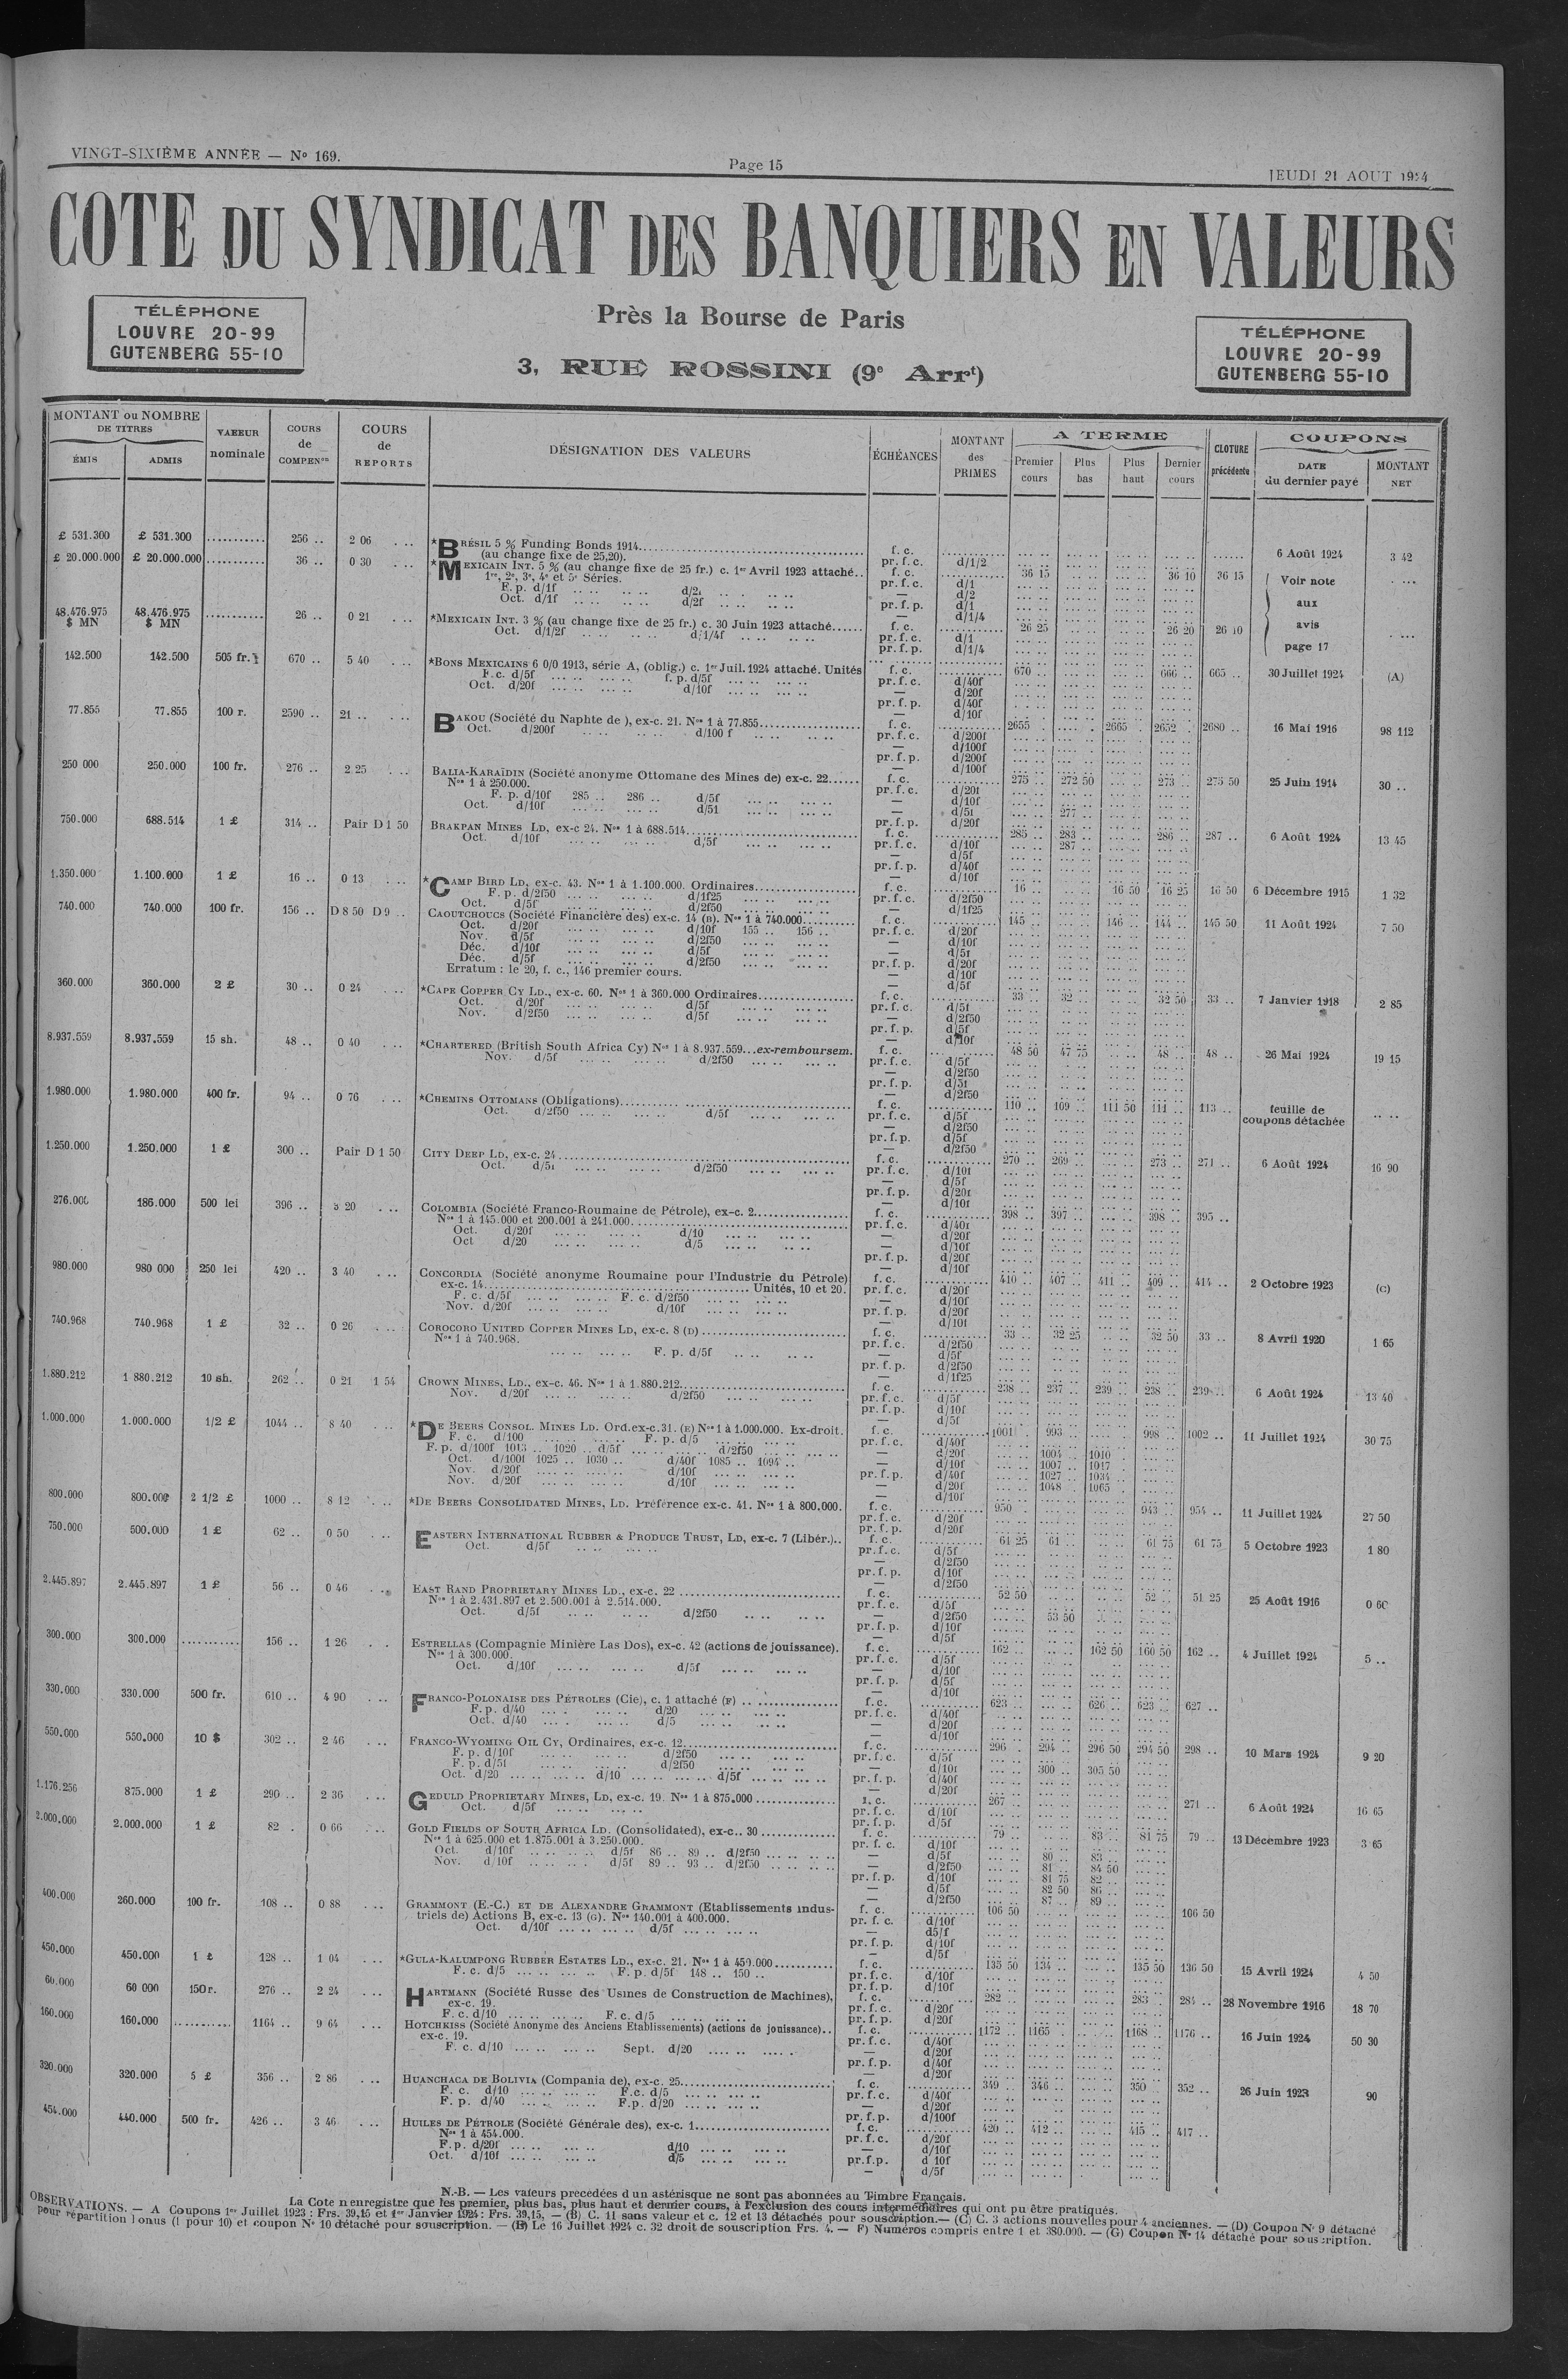 VINGT-SIXIÈME ANNÉE — No 169.
Page 15
JEUDI 21 AOUT 1924
COTE DU SYNDICAT DES BANQUIERS EN VALEURS
TÉLÉPHONE
LOUVRE 20-99
GUTENBERG 55-10
Près la Bourse de Paris
3, RUE ROSSINI (9e Arrt)
TÉLÉPHONE
LOUVRE 20-99
GUTENBERG 55-10
MONTANT ou NOMBRE DE TITRES
ÉMIS ADMIS
VALEUR nominale
COURS de COMPENon
COURS de REPORTS
DÉSIGNATION DES VALEURS
ÉCHÉANCES
MONTANT des PRIMES
A TERME
Premier cours Plus bas Plus haut Dernier cours
CLOTURE précédente
COUPONS
DATE du dernier payé MONTANT NET
£ 531.300 £ 531.300 256 .. 2 06 *BRÉSIL 5 % Funding Bonds 1914 f. c. 6 Août 1924 3 42
(au change fixe de 25,20). pr. f. c. d/1/2
£ 20.000.000 £ 20.000.000 36 .. 0 30 *MEXICAIN INT. 5 % (au change fixe de 25 fr.) c. 1er Avril 1923 attaché.. f. c. 36 15 36 10 36 15 Voir note
1re, 2e, 3e, 4e et 5e Séries. pr. f. c. d/1
F. p. d/1f d/2f — d/2
Oct. d/1f d/2f pr. f. p. d/1 aux
— d/1/4
48.476.975 $ MN 48.476.975 $ MN 26 .. 0 21 *MEXICAIN INT. 3 % (au change fixe de 25 fr.) c. 30 Juin 1923 attaché f. c. 26 25 26 20 26 10 avis
Oct. d/1/2f d/1/4f pr. f. c. d/1
pr. f. p. d/1/4 page 17
142.500 142.500 505 fr. 670 .. 5 40 *BONS MEXICAINS 6 0/0 1913, série A, (oblig.) c. 1er Juil. 1924 attaché. Unités f. c. 670 .. 666 .. 665 .. 30 Juillet 1924 (A)
F. c. d/5f f. p. d/5f pr. f. c. d/40f
Oct. d/20f d/10f — d/20f
pr. f. p. d/40f
— d/10f
77.855 77.855 100 r. 2590 .. 21 .. BAKOU (Société du Naphte de ), ex-c. 21. Nos 1 à 77.855 f. c. 2655 . 2665 . 2652 . 2680 .. 16 Mai 1916 98 112
Oct. d/200f d/100 f pr. f. c. d/200f
— d/100f
pr. f. p. d/200f
— d/100f
250 000 250.000 100 fr. 276 .. 2 25 BALIA-KARAÏDIN (Société anonyme Ottomane des Mines de) ex-c. 22 f. c. 275 .. 272 50 273 .. 275 50 25 Juin 1914 30 ..
Nos 1 à 250.000. pr. f. c. d/20f
F. p. d/10f 285 .. 286 .. d/5f — d/10f
Oct. d/10f d/5f — d/5f 277 ..
pr. f. p. d/20f
750.000 688.514 1 £ 314 .. Pair D 1 50 BRAKPAN MINES LD, ex-c 24. Nos 1 à 688.514 f. c. 285 .. 283 .. 286 .. 287 .. 6 Août 1924 13 45
Oct. d/10f d/5f pr. f. c. d/10f 287 ..
— d/5f
pr. f. p. d/40f
— d/10f
1.350.000 1.100.000 1 £ 16 .. 0 13 *CAMP BIRD LD, ex-c. 43. Nos 1 à 1.100.000. Ordinaires f. c. 16 .. 16 50 16 25 16 50 6 Décembre 1915 1 32
F. p. d/2f50 d/1f25 pr. f. c. d/2f50
Oct. d/5f d/2f50 — d/1f25
740.000 740.000 100 fr. 156 .. D 8 50 D 9 .. CAOUTCHOUCS (Société Financière des) ex-c. 14 (B). Nos 1 à 740.000 f. c. 145 .. 146 .. 144 .. 145 50 11 Août 1924 7 50
Oct. d/20f d/10f 155 .. 156 .. pr. f. c. d/20f
Nov. d/5f d/2f50 — d/10f
Déc. d/10f d/5f — d/5f
Déc. d/5f d/2f50 pr. f. p. d/20f
Erratum : le 20, f. c., 146 premier cours. — d/10f
— d/5f
360.000 360.000 2 £ 30 .. 0 24 *CAPE COPPER CY LD., ex-c. 60. Nos 1 à 360.000 Ordinaires f. c. 33 .. 32 .. 32 50 33 .. 7 Janvier 1918 2 85
Oct. d/20f d/5f pr. f. c. d/5f
Nov. d/2f50 d/5f — d/2f50
pr. f. p. d/5f
— d/10f
8.937.559 8.937.559 15 sh. 48 .. 0 40 *CHARTERED (British South Africa Cy) Nos 1 à 8.937.559...ex-remboursem. f. c. 48 50 47 75 48 .. 48 .. 26 Mai 1924 19 15
Nov. d/5f d/2f50 pr. f. c. d/5f
— d/2f50
pr. f. p. d/5f
— d/2f50
1.980.000 1.980.000 400 fr. 94 .. 0 76 *CHEMINS OTTOMANS (Obligations) f. c. 110 .. 109 .. 111 50 111 .. 113 .. feuille de coupons détachée
Oct. d/2f50 d/5f pr. f. c. d/5f
— d/2f50
pr. f. p. d/5f
— d/2f50
1.250.000 1.250.000 1 £ 300 .. Pair D 1 50 CITY DEEP LD, ex-c. 24 f. c. 270 .. 269 .. 273 .. 271 .. 6 Août 1924 16 90
Oct. d/5f d/2f50 pr. f. c. d/10f
— d/5f
pr. f. p. d/20f
— d/10f
276.000 186.000 500 lei 396 .. 3 20 COLOMBIA (Société Franco-Roumaine de Pétrole), ex-c. 2 f. c. 398 .. 397 .. 398 .. 395 ..
Nos 1 à 145.000 et 200.001 à 241.000 pr. f. c. d/40f
Oct. d/20f d/10 — d/20f
Oct d/20 d/5 — d/10f
pr. f. p. d/20f
— d/10f
980.000 980 000 250 lei 420 .. 3 40 CONCORDIA (Société anonyme Roumaine pour l'Industrie du Pétrole) f. c. 410 .. 407 .. 411 .. 409 .. 414 .. 2 Octobre 1923 (C)
ex-c. 14 Unités, 10 et 20. pr. f. c. d/20f
F. c. d/5f F. c. d/2f50 — d/10f
Nov. d/20f d/10f pr. f. p. d/20f
— d/10f
740.968 740.968 1 £ 32 .. 0 26 COROCORO UNITED COPPER MINES LD, ex-c. 8 (D) f. c. 33 .. 32 25 32 50 33 .. 8 Avril 1920 1 65
Nos 1 à 740.968. pr. f. c. d/2f50
F. p. d/5f — d/5f
pr. f. p. d/2f50
— d/1f25
1.880.212 1 880.212 10 sh. 262 .. 0 21 1 54 CROWN MINES, LD., ex-c. 46. Nos 1 à 1.880.212 f. c. 238 .. 237 .. 239 .. 238 .. 239 .. 6 Août 1924 13 40
Nov. d/20f d/2f50 pr. f. c. d/5f
pr. f. p. d/10f
— d/5f
1.000.000 1.000.000 1/2 £ 1044 .. 8 40 *DE BEERS CONSOL. MINES LD. Ord. ex-c. 31. (E) Nos 1 à 1.000.000. Ex-droit. f. c. 1001 . 993 .. 998 .. 1002 .. 11 Juillet 1924 30 75
F. c. d/100 F. p. d/5 pr. f. c. d/40f
F. p. d/100f 1013 .. 1020 .. d/5f d/2f50 — d/20f 1004 .. 1010 .
Oct. d/100f 1025 .. 1030 .. d/40f 1085 .. 1094 .. — d/10f 1007 .. 1017 .
Nov. d/20f d/10f pr. f. p. d/40f 1027 .. 1034 .
Nov. d/20f d/10f — d/20f 1048 .. 1065 .
— d/10f
800.000 800.000 2 1/2 £ 1000 .. 8 12 *DE BEERS CONSOLIDATED MINES, LD. Préférence ex-c. 41. Nos 1 à 800.000. f. c. 950 .. 943 .. 954 .. 11 Juillet 1924 27 50
pr. f. c. d/20f
pr. f. p. d/20f
750.000 500.000 1 £ 62 .. 0 50 EASTERN INTERNATIONAL RUBBER & PRODUCE TRUST, LD, ex-c. 7 (Libér.).. f. c. 61 25 61 .. 61 75 61 75 5 Octobre 1923 1 80
Oct. d/5f pr. f. c. d/5f
— d/2f50
pr. f. p. d/10f
— d/2f50
2.445.897 2.445.897 1 £ 56 .. 0 46 EAST RAND PROPRIETARY MINES LD., ex-c. 22 f. c. 52 50 52 .. 51 25 25 Août 1916 0 60
Nos 1 à 2.431.897 et 2.500.001 à 2.514.000. pr. f. c. d/5f
Oct. d/5f d/2f50 — d/2f50 53 50
pr. f. p. d/10f
— d/5f
300.000 300.000 156 .. 1 26 ESTRELLAS (Compagnie Minière Las Dos), ex-c. 42 (actions de jouissance). f. c. 162 .. 162 50 160 50 162 .. 4 Juillet 1924 5 ..
Nos 1 à 300.000. pr. f. c. d/5f
Oct. d/10f d/5f — d/10f
pr. f. p. d/5f
— d/10f
330.000 330.000 500 fr. 610 .. 4 90 FRANCO-POLONAISE DES PÉTROLES (Cie), c. 1 attaché (F) f. c. 623 .. 626 .. 623 .. 627 ..
F. p. d/40 d/20 pr. f. c. d/40f
Oct. d/40 d/5 — d/20f
— d/10f
550.000 550.000 10 $ 302 .. 2 46 FRANCO-WYOMING OIL CY, Ordinaires, ex-c. 12 f. c. 296 . 294 .. 296 50 294 50 298 .. 10 Mars 1924 9 20
F. p. d/10f d/2f50 pr. f. c. d/5f
F. p. d/5f d/2f50 — d/10f 300 .. 305 50
Oct. d/20 d/10 d/5f pr. f. p. d/40f
— d/20f
1.176.256 875.000 1 £ 290 .. 2 36 GEDULD PROPRIETARY MINES, LD, ex-c. 19. Nos 1 à 875.000 f. c. 267 .. 271 .. 6 Août 1924 16 65
Oct. d/5f pr. f. c. d/10f
pr. f. p. d/5f
2.000.000 2.000.000 1 £ 82 . 0 66 GOLD FIELDS OF SOUTH AFRICA LD. (Consolidated), ex-c.. 30 f. c. 79 .. 83 .. 81 75 79 .. 13 Décembre 1923 3 65
Nos 1 à 625.000 et 1.875.001 à 3.250.000. pr. f. c. d/10f
Oct. d/10f d/5f 86 .. 89 .. d/2f50 — d/5f 80 .. 83 ..
Nov. d/10f d/5f 89 .. 93 .. d/2f50 — d/2f50 81 .. 84 50
pr. f. p. d/10f 81 75 82 ..
— d/5f 82 50 86 ..
— d/2f50 87 .. 89 ..
400.000 260.000 100 fr. 108 .. 0 88 GRAMMONT (E.-C.) ET DE ALEXANDRE GRAMMONT (Etablissements indus- f. c. 106 50 106 50
triels de) Actions B, ex-c. 13 (G). Nos 140.001 à 400.000. pr. f. c. d/10f
Oct. d/10f d/5f — d5/f
pr. f. p. d/10f
— d/5f
450.000 450.000 1 £ 128 .. 1 04 *GULA-KALUMPONG RUBBER ESTATES LD., ex-c. 21. Nos 1 à 450.000 f. c. 135 50 134 .. 135 50 136 50 15 Avril 1924 4 50
F. c. d/5 F. p. d/5f 148 .. 150 .. pr. f. c. d/10f
pr. f. p. d/10f
60.000 60 000 150 r. 276 .. 2 24 HARTMANN (Société Russe des Usines de Construction de Machines), f. c. 282 .. 283 . 284 .. 28 Novembre 1916 18 70
ex-c. 19. pr. f. c. d/20f
F. c. d/10 F. c. d/5 pr. f. p. d/20f
160.000 160.000 1164 .. 9 64 HOTCHKISS (Société Anonyme des Anciens Etablissements) (actions de jouissance).. f. c. 1172 .. 1165 . 1168 .. 1176 .. 16 Juin 1924 50 30
ex-c. 19. pr. f. c. d/40f
F. c. d/10 Sept. d/20 — d/20f
pr. f. p. d/40f
— d/20f
320.000 320.000 5 £ 356 .. 2 86 HUANCHACA DE BOLIVIA (Compania de), ex-c. 25 f. c. 349 .. 346 .. 350 .. 352 .. 26 Juin 1923 90
F. c. d/10 F.c. d/5 pr. f. c. d/40f
F. p. d/40 F.p. d/20 — d/20f
pr. f. p. d/100f
454.000 440.000 500 fr. 426 .. 3 46 HUILES DE PÉTROLE (Société Générale des), ex-c. 1 f. c. 420 .. 412 .. 415 .. 417 ..
Nos 1 à 454.000. pr. f. c. d/20f
F. p. d/20f d/10 — d/10f
Oct. d/10f d/5 pr.f.p. d 10f
— d/5f
N.-B. — Les valeurs precédées d un astérisque ne sont pas abonnées au Timbre Français.
La Cote n enregistre que les premier, plus bas, plus haut et dernier cours, à l'exclusion des cours intermédiaires qui ont pu être pratiqués.
OBSERVATIONS. — A Coupons 1er Juillet 1923 : Frs. 39,15 et 1er Janvier 1924 : Frs. 39,15, — (B) C. 11 sans valeur et c. 12 et 13 détachés pour souscription.— (C) C. 3 actions nouvelles pour 4 anciennes. — (D) Coupon N° 9 détaché
pour répartition bonus (1 pour 10) et coupon N° 10 détaché pour souscription. — (E) Le 16 Juillet 1924 c. 32 droit de souscription Frs. 4. — F) Numéros compris entre 1 et 380.000. — (G) Coupon N° 14 détaché pour souscription.